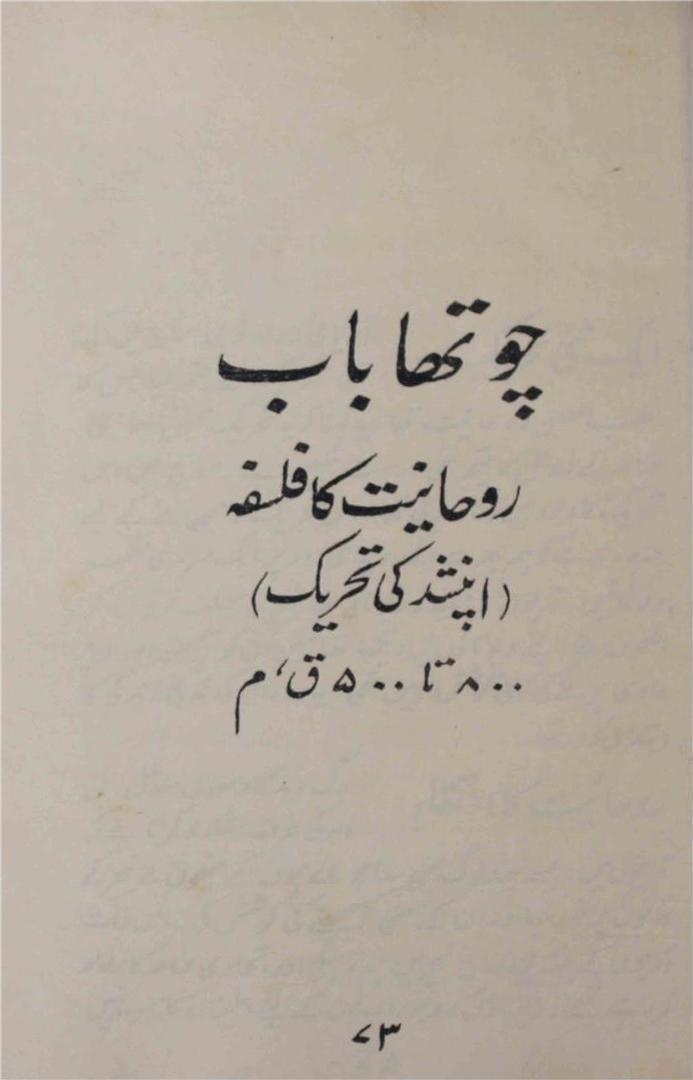 چوتھا باب
روحانیت کا فلسفہ
(اپنشد کی تحریک)
۸۰۰ تا ۵۰۰ ق، م
۷۳